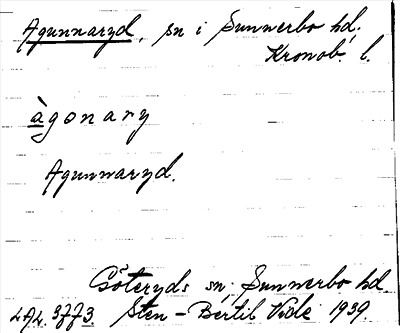 Agunnaryd, sn i Sunnerbo hd.
Kronob. l.
àgonary
Agunnaryd.
Göteryds sn, Sunnerbo hd.
3773. Sten-Bertil Vide 1939.